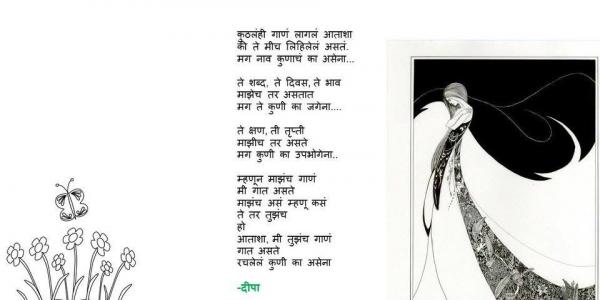 कुठलंही गाणं लागलं आताशा
की ते मीच लिहिलेलं असतं.
मग नाव कुणाचं का असेना...
ते शब्द, ते दिवस, ते भाव
माझेच तर असतात
मग ते कुणी का जगेना....
ते क्षण, ती तृप्ती
माझीच तर असते
मग कुणी का उपभोगेना..
म्हणून माझंच गाणं
मी गात असते
माझंच असं म्हणू कसं
ते तर तुझंच
हो
आताशा, मी तुझंच गाणं
गात असते
रचलेलं कुणी का असेना
-दीपा